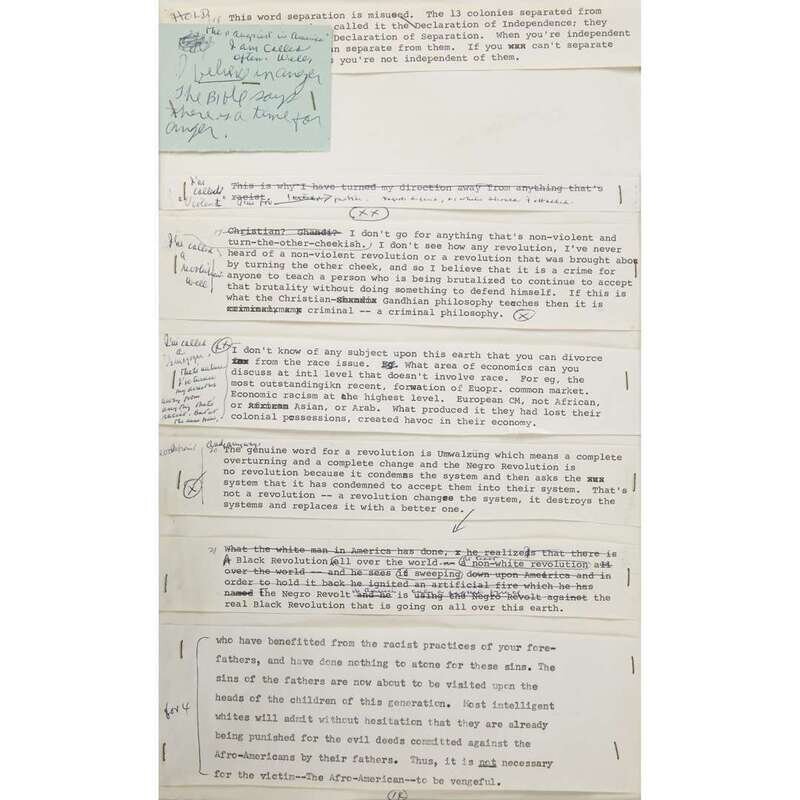 HOLD
This word separation is misued. The 13 colonies separated from
called it the Declaration of Independence; they
Declaration of Separation. When you're independent
n separate from them. If you xxx can't separate
s you're not independent of them.
The "angriest in America"
I am called
often. Well,
I believe in anger
The Bible says
there is a time for
anger.
I'm called "violent"
This is why I have turned my direction away from anything that's
racist.
(xx)
I'm called a
Well
Christian? Ghandi? I don't go for anything that's non-violent and
turn-the-other-cheekish. I don't see how any revolution, I've never
heard of a non-violent revolution or a revolution that was brought abo
by turning the other cheek, and so I believe that it is a crime for
anyone to teach a person who is being brutalized to continue to accept
that brutality without doing something to defend himself. If this is
what the Christian-Ghandix Gandhian philosophy teaches then it is
criminal, criminal -- a criminal philosophy. (x)
I'm called
a
(xx)
I don't know of any subject upon this earth that you can divorce
from the race issue. Eg. What area of economics can you
discuss at intl level that doesn't involve race. For eg, the
most outstandingikn recent, formation of Euopr. common market.
Economic racism at the highest level. European CM, not African,
or African Asian, or Arab. What produced it they had lost their
colonial possessions, created havoc in their economy.
The genuine word for a revolution is Umwalzung which means a complete
overturning and a complete change and the Negro Revolution is
no revolution because it condemns the system and then asks the xxx
system that it has condemned to accept them into their system. That's
not a revolution -- a revolution changes the system, it destroys the
systems and replaces it with a better one.
(x)
What the white man in America has done, x he realizes that there is
A Black Revolution all over the world -- a non-white revolution all
over the world -- and he sees it sweeping down upon America and in
order to hold it back he ignited an artificial fire which he has
named the Negro Revolt and he is using the Negro Revolt against the
real Black Revolution that is going on all over this earth.
for 4
who have benefitted from the racist practices of your fore-
fathers, and have done nothing to atone for these sins. The
sins of the fathers are now about to be visited upon the
heads of the children of this generation. Most intelligent
whites will admit without hesitation that they are already
being punished for the evil deeds committed against the
Afro-Americans by their fathers. Thus, it is not necessary
for the victim--The Afro-American--to be vengeful.